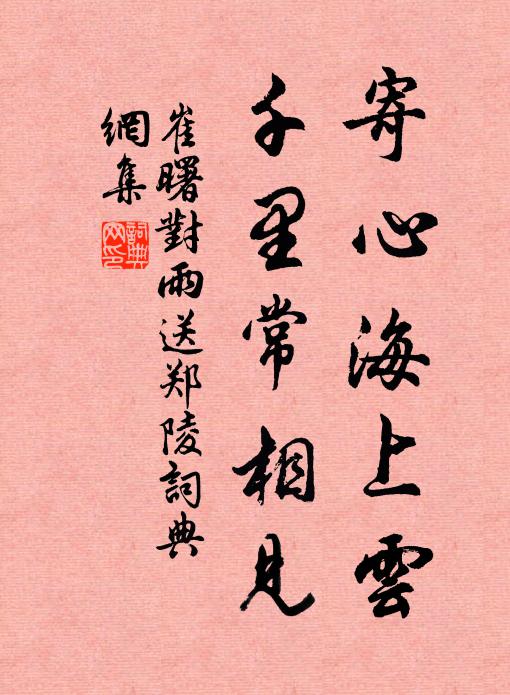 寄心海上雲
千里常相見
崔曙對雨送郑陵詞典
網集
詞典
网印